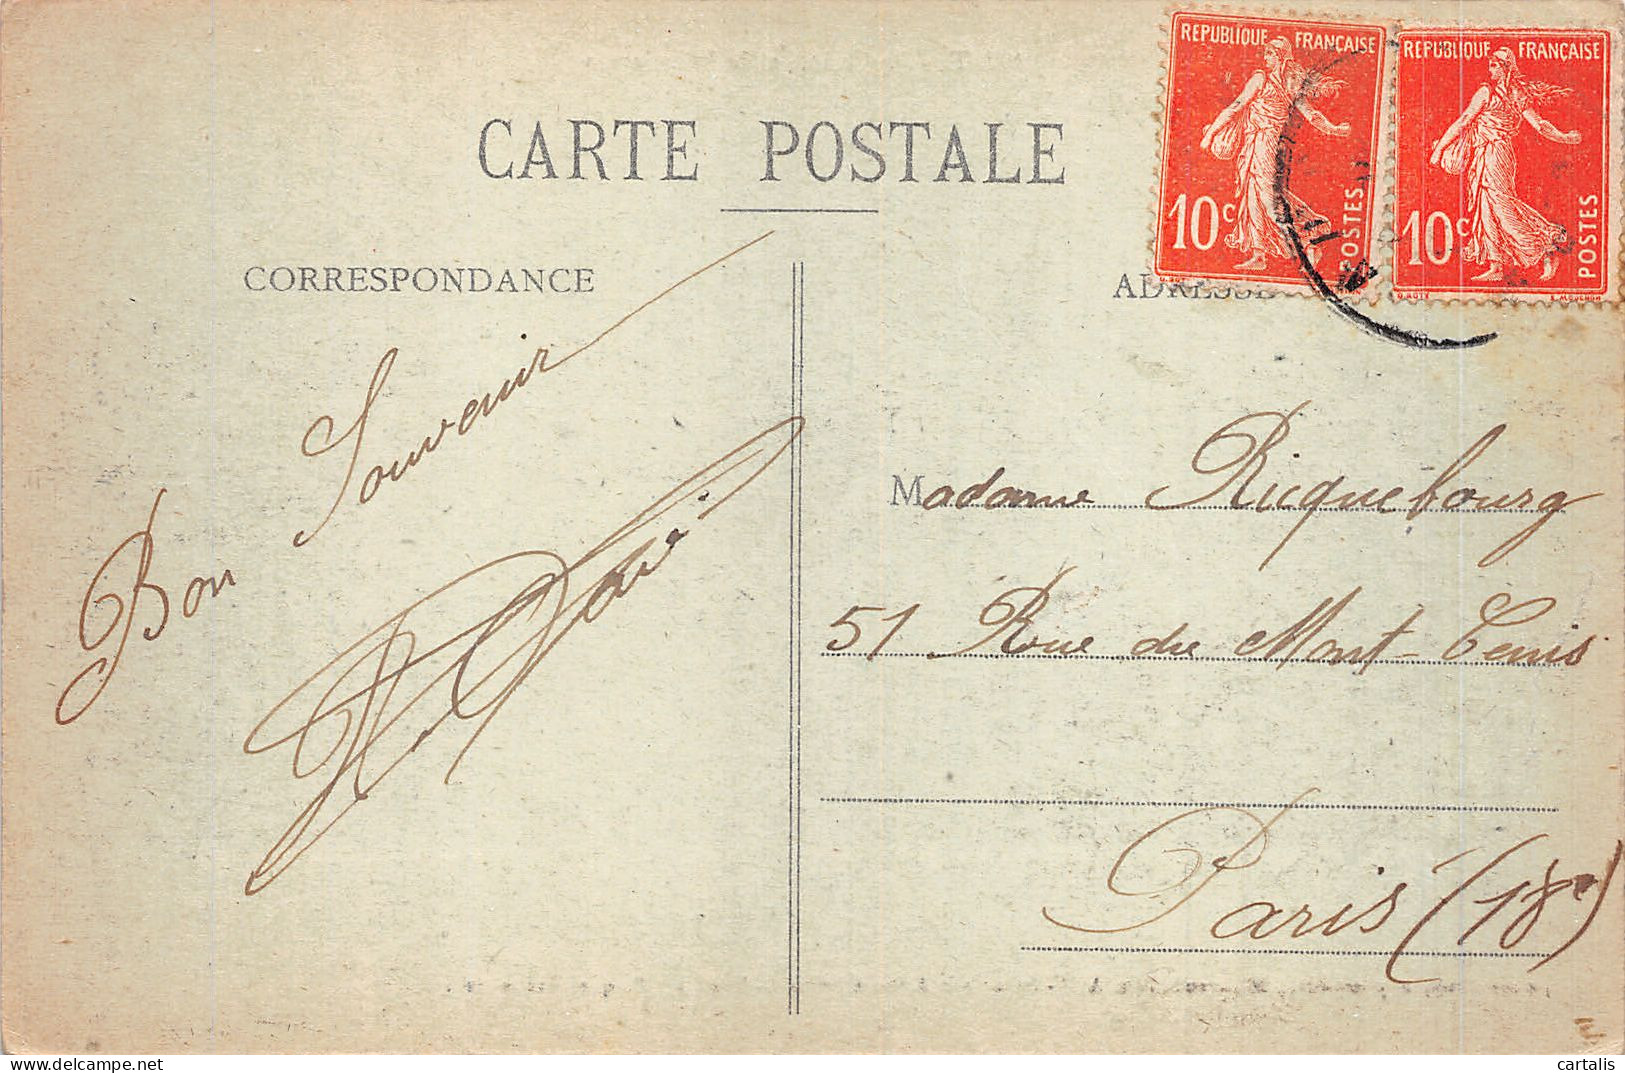 REPUBLIQUE FRANÇAISE
10c
POSTES
REPUBLIQUE FRANÇAISE
10c
POSTES
O. ROTY
E. MOUCHON
CARTE POSTALE
CORRESPONDANCE
ADRESSE
Bon Souvenir
Madame Ricquebourg
51 Rue du Mont-Cenis
Paris (18e)
delcampe.net
cartalis